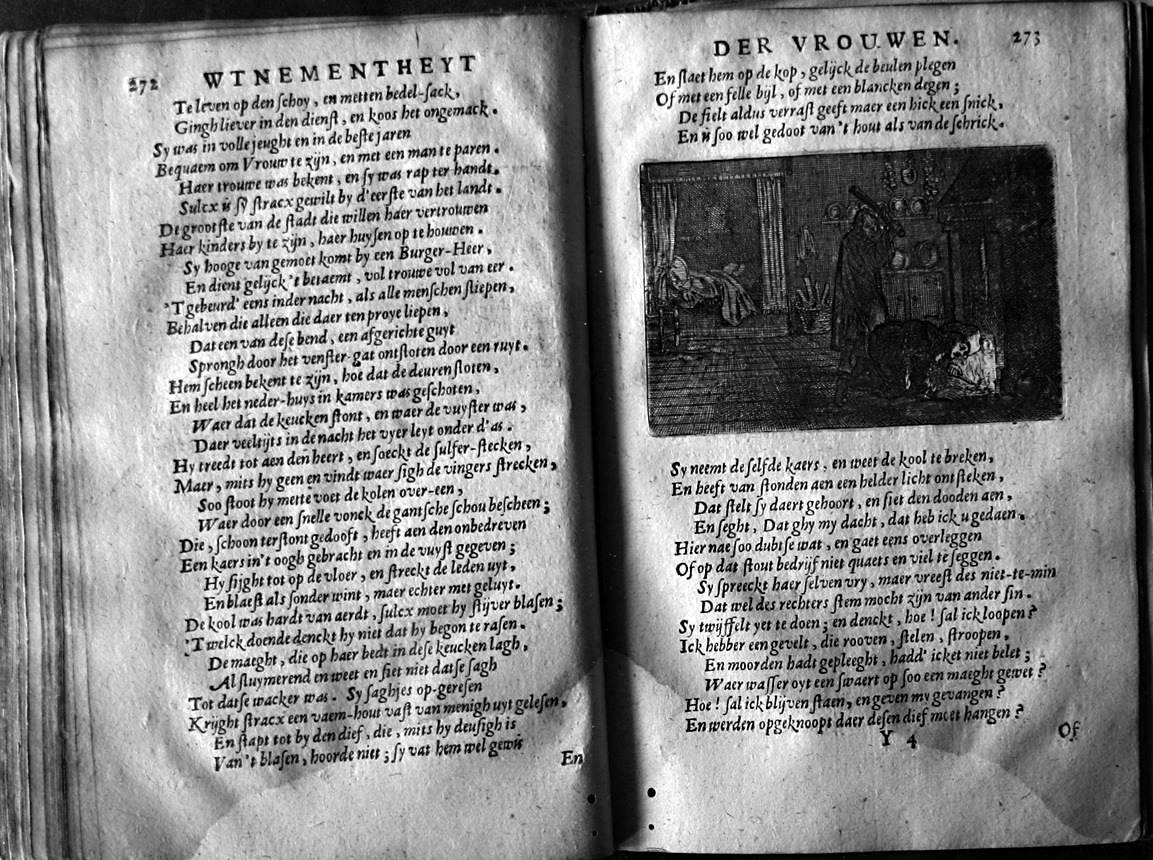 272 WTNEMENTHEYT
Te leven op den ſchoy, en metten bedel-ſack,
Gingh liever in den dienſt, en koos het ongemack.
Sy was in volle jeught en in de beſte jaren
Bequaem om Vrouw te zijn, en met een man te paren.
Haer trouwe was bekent, en ſy was rap ter handt.
Sulcx is ſy ſtracx gewilt by d'eerſte van het landt.
De grootſte van de ſtadt die willen haer vertrouwen
Haer kinders by te zijn, haer huyſen op te houwen.
Sy hooge van gemoet komt by een Burger-Heer,
En dient gelijck 't betaemt, vol trouwe vol van eer.
'T gebeurd' eens inder nacht, als alle menſchen ſliepen,
Behalven die alleen die daer ten proye liepen,
Dat een van deſe bend, een afgerichte guyt
Sprongh door het venſter-gat ontſloten door een ruyt.
Hem ſcheen bekent te zijn, hoe dat de deuren ſloten,
En heel het neder-huys in kamers was geſchoten,
Waer dat de keucken ſtont, en waer de vuyſter was,
Daer veeltijts in de nacht het vyer leyt onder d'as.
Hy treedt tot aen den heert, en ſoeckt de ſulfer-ſtecken,
Maer, mits hy geen en vindt waer ſigh de vingers ſtrecken,
Soo ſtoot hy mette voet de kolen over-een,
Waer door een ſnelle vonck de gantſche ſchou beſcheen;
Die, ſchoon terſtont gedooft, heeft aen den onbedreven
Een kaers in't oogh gebracht en in de vuyſt gegeven;
Hy ſijght tot op de vloer, en ſtreckt de leden uyt,
En blaeſt als ſonder wint, maer echter met geluyt.
De kool was hardt van aerdt, ſulcx moet hy ſtijver blaſen;
'T welck doende denckt hy niet dat hy begon te raſen.
De maeght, die op haer bedt in deſe keucken lagh,
Al ſluymerend en weet en ſiet niet datſe ſagh
Tot datſe wacker was. Sy ſaghjes op-gereſen
Krijght ſtracx een vaem-hout vaſt van menigh uyt geleſen,
En ſtapt tot by den dief, die, mits hy deuſigh is
Van 't blaſen, hoorde niet; ſy vat hem wel gewis
En
DER VROUWEN. 273
En ſlaet hem op de kop, gelijck de beulen plegen
Of met een felle bijl, of met een blancken degen;
De fielt aldus verraſt geeft maer een hick een ſnick,
En is ſoo wel gedoot van 't hout als van de ſchrick.
Sy neemt de ſelfde kaers, en weet de kool te breken,
En heeft van ſtonden aen een helder licht ontſteken,
Dat ſtelt ſy daer't gehoort, en ſiet den dooden aen,
En ſeght, Dat ghy my dacht, dat heb ick u gedaen.
Hier nae ſoo dubtſe wat, en gaet eens overleggen
Of op dat ſtout bedrijf niet quaets en viel te ſeggen.
Sy ſpreeckt haer ſelven vry, maer vreeſt des niet-te-min
Dat wel des rechters ſtem mocht zijn van ander ſin.
Sy twijffelt yet te doen; en denckt, hoe! ſal ick loopen?
Ick hebber een gevelt, die rooven, ſtelen, ſtroopen,
En moorden hadt gepleeght, hadd' icket niet belet;
Waer waſſer oyt een ſwaert op ſoo een maeght gewet?
Hoe! ſal ick blijven ſtaen, en geven my gevangen?
En werden opgeknoopt daer deſen dief moet hangen?
Y 4
Of